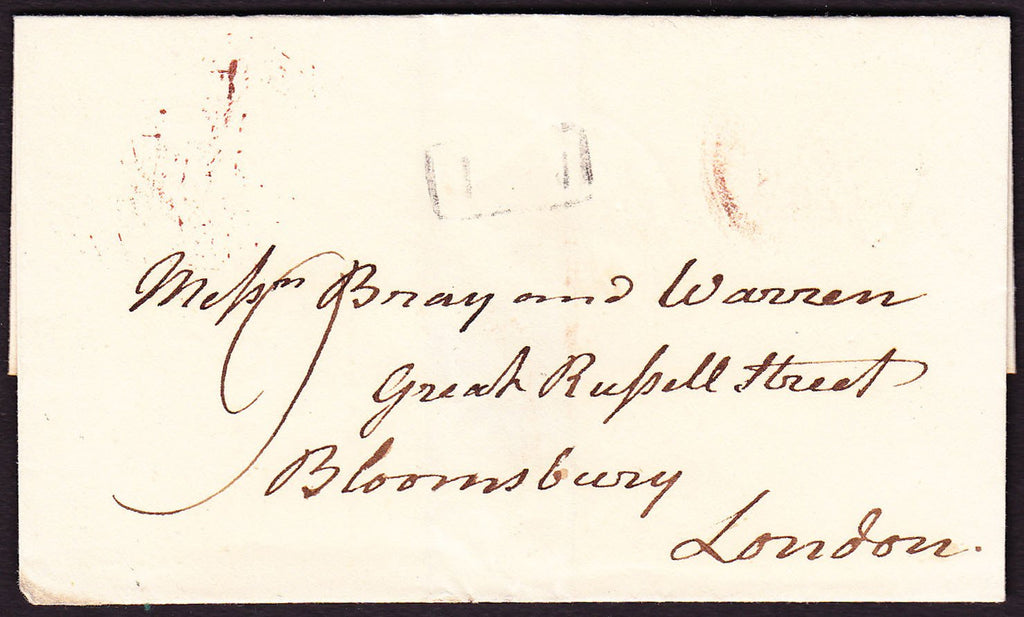 Meſsrs Bray and Warren
Great Ruſsell Street
Bloomsbury
London.